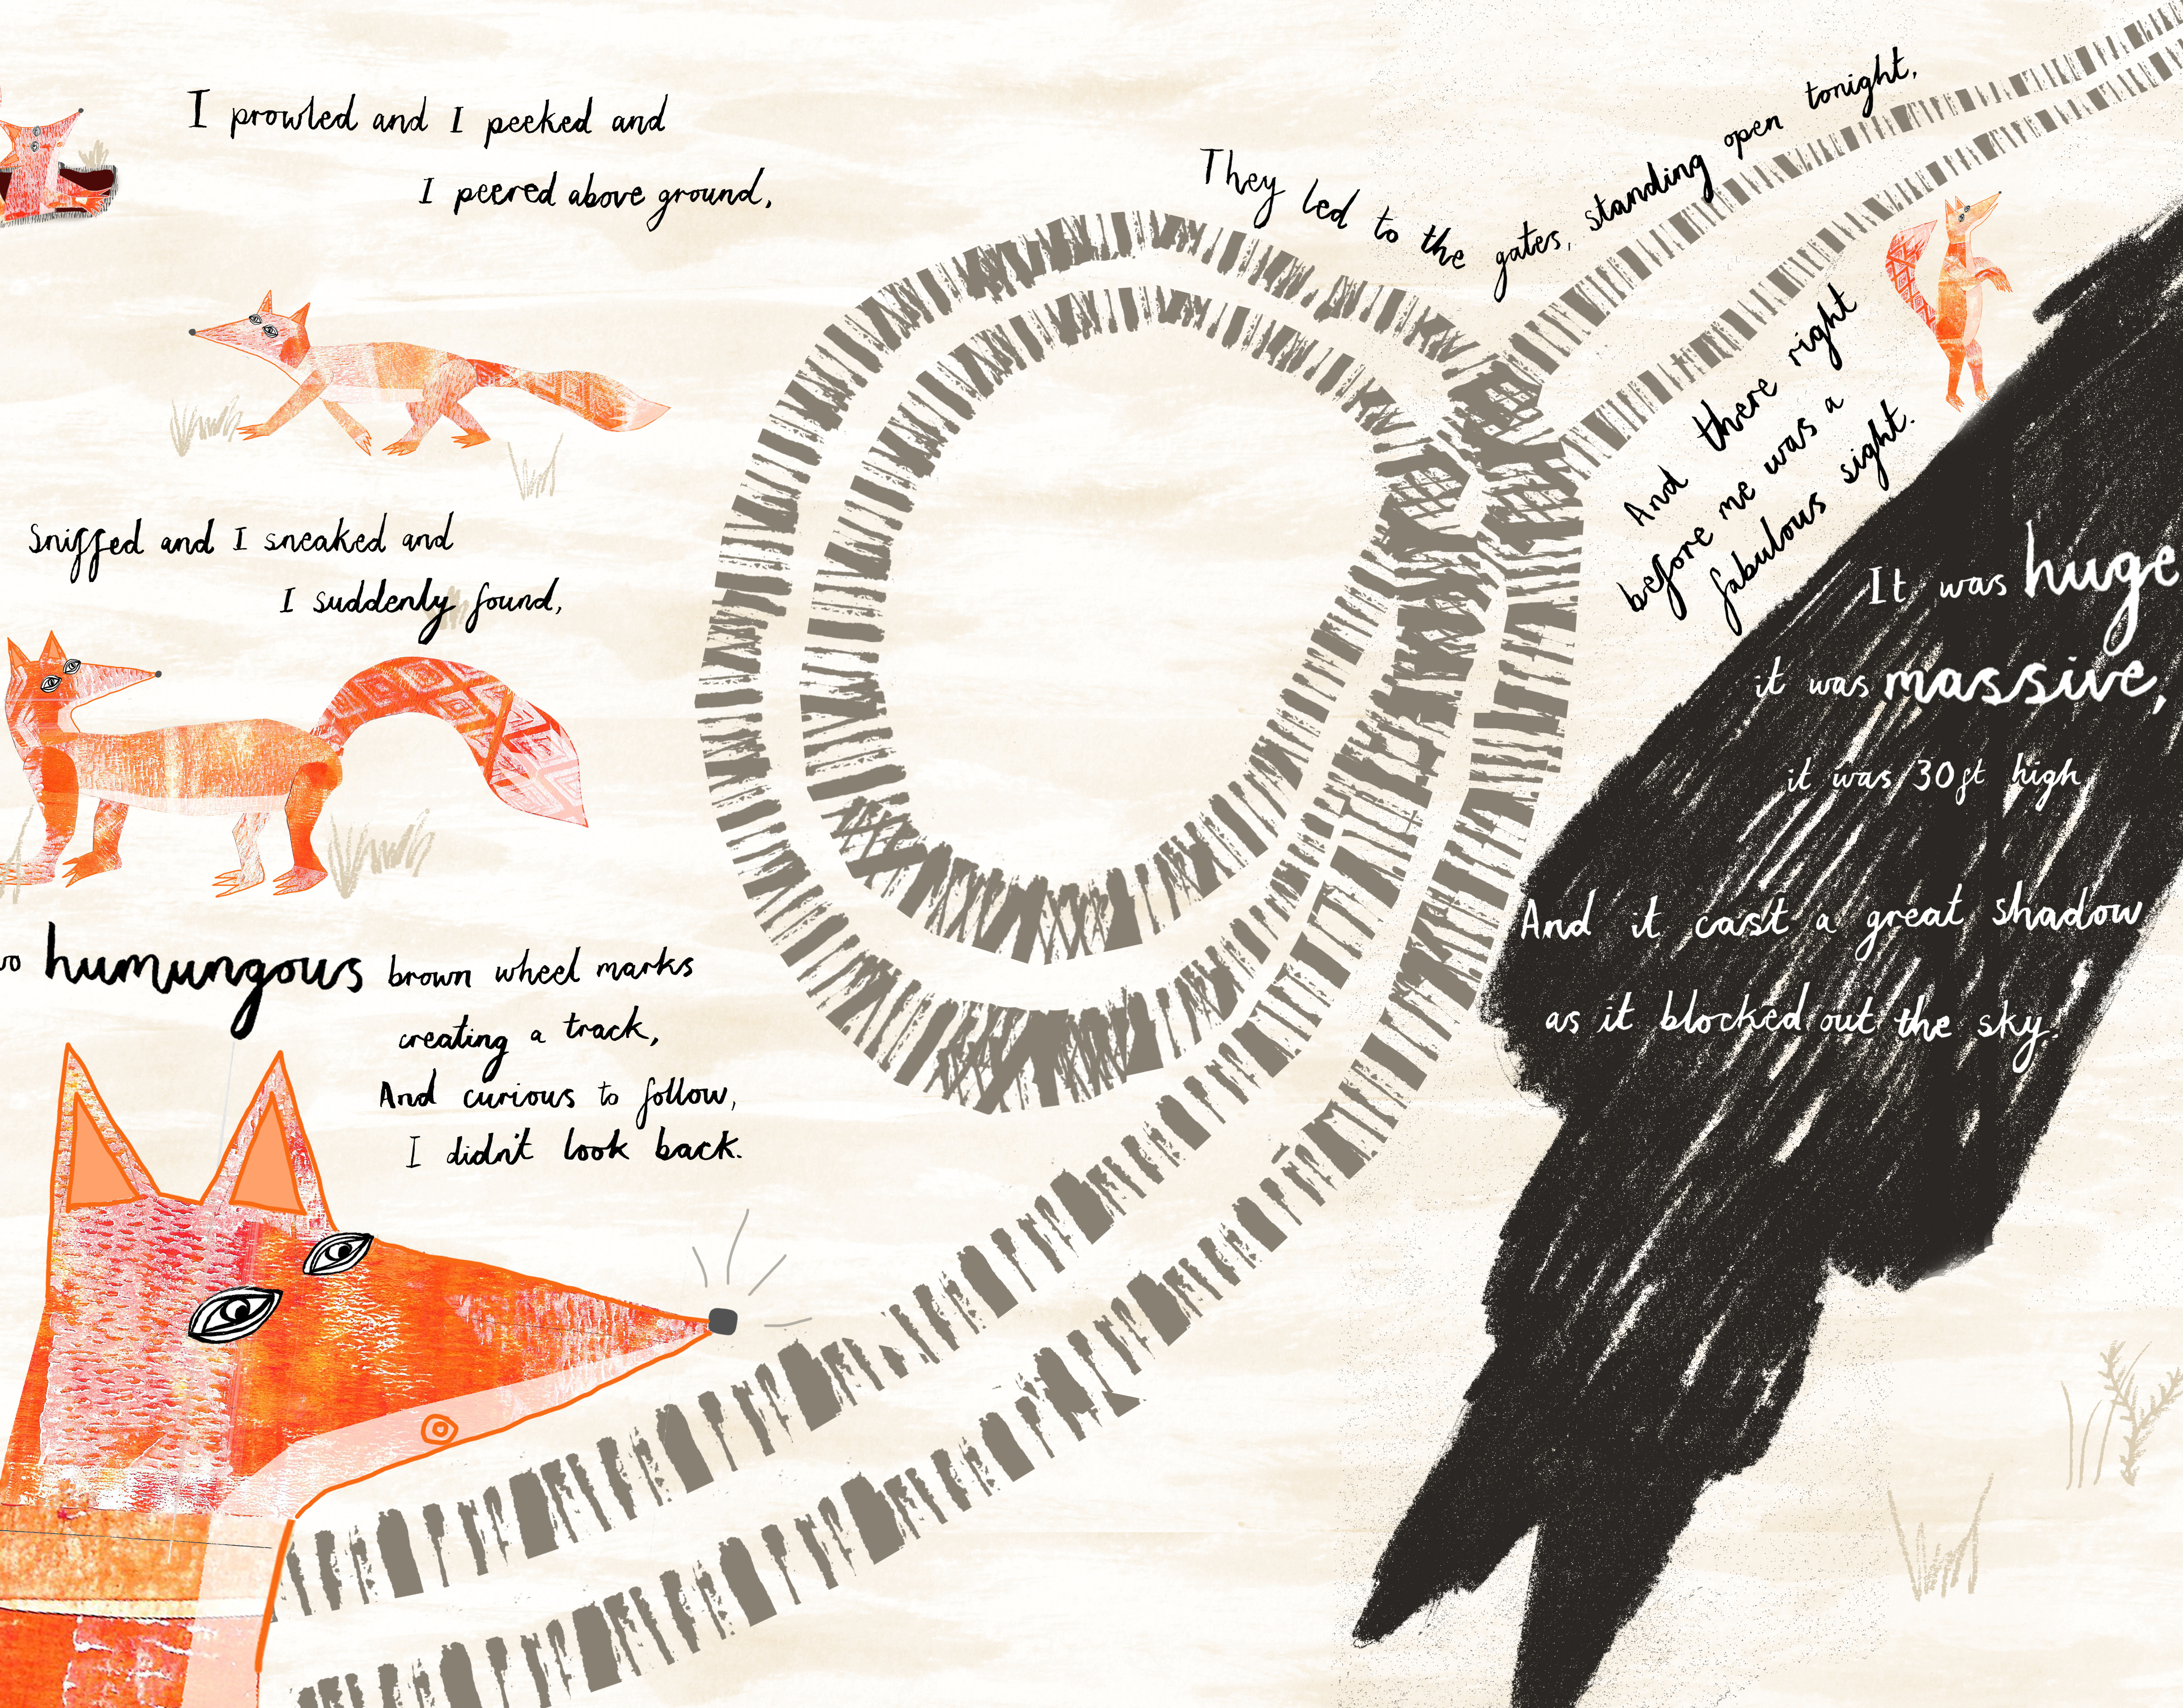 I prowled and I peeked and
I peered above ground,
Sniffed and I sneaked and
I suddenly found,
humungous brown wheel marks
creating a track,
And curious to follow,
I didn't look back.
They led to the gates, standing open tonight,
And there right
before me was a
fabulous sight.
It was huge
it was massive,
it was 30ft high
And it cast a great shadow
as it blocked out the sky.